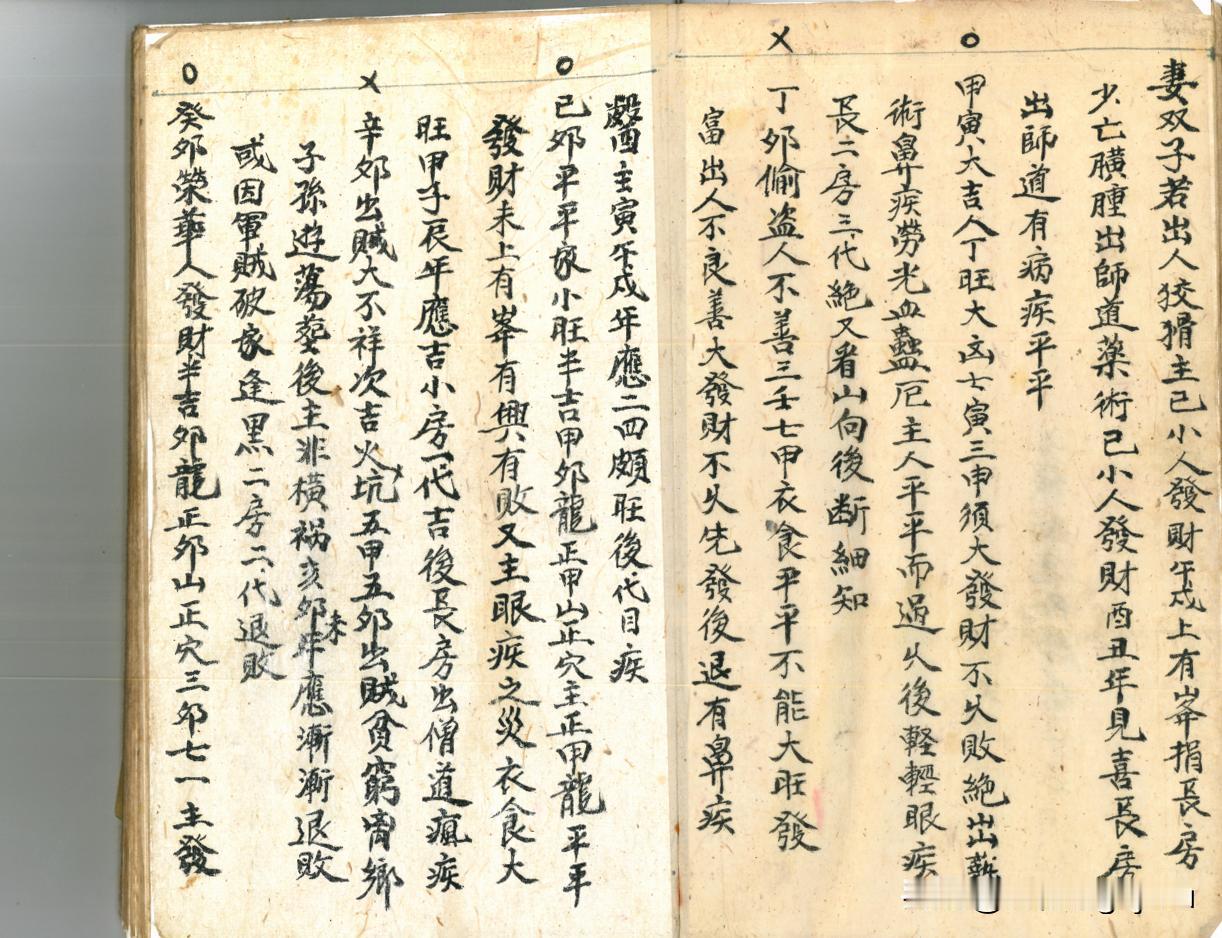 妻双子若出人狡猾主己小人發財午戌上有峯捐長房
少亡膜腫出師道藥術己小人發財酉丑年見喜長房
出師道有病疾平平
○
甲寅大吉人丁旺大凶七寅三申須大發財不久敗絶出
術鼻疾勞光血蠱厄主人平平而過久後軽輕眼疾
長二房三代絶又看山向後断細知
×
丁夘偷盗人不善三壬七甲衣食平平不能大旺發
富出人不良善大發財不久先發後退有鼻疾
主寅午戌年應二四頗旺後代目疾
○
己夘平平家小旺半吉甲夘龍正甲山正穴主正甲龍平平
發財未上有峯有興有敗又主眼疾之災衣食大
旺甲子辰年應吉小房一代吉後長房出僧道瘋疾
×
辛夘出賊大不祥次吉火坑五甲五夘出賊貧窮鄉
子孫遊蕩塟後主非橫禍亥夘未年應漸漸退敗
或因軍賊破家逢黒二房二代退敗
○
癸夘榮華人發財半吉夘龍正夘山正穴三夘七一主發